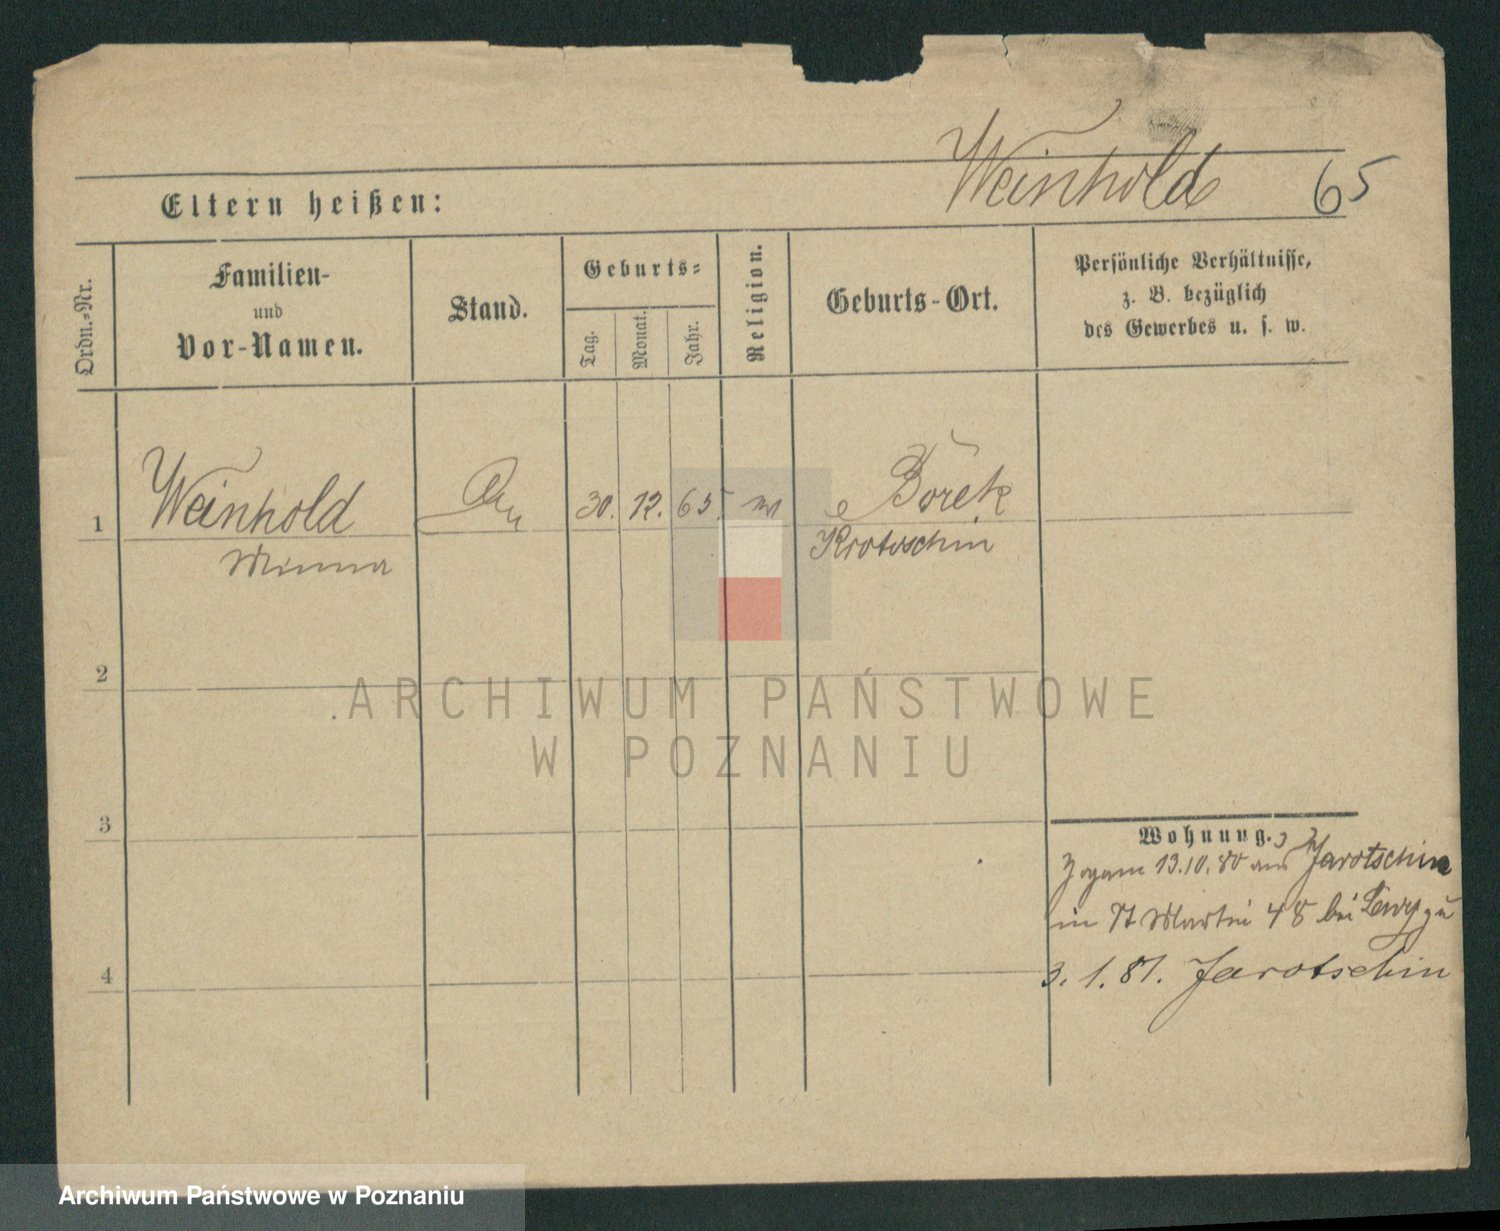 Weinhold 65
Eltern heißen:
Ordn.-Nr.
Familien-
und
Vor-Namen.
Stand.
Geburts-
Tag.
Monat.
Jahr.
Religion.
Geburts-Ort.
Persönliche Verhältnisse,
z. B. bezüglich
des Gewerbes u. s. w.
1 Weinhold 30. 12. 65. Borek
Minna Krotoschin
2
3
4
Wohnung.
Zogam 13.10.80 aus Jarotschin
in St Martin 48 bei
3. 1. 81. Jarotschin
ARCHIWUM PAŃSTWOWE
W POZNANIU
Archiwum Państwowe w Poznaniu